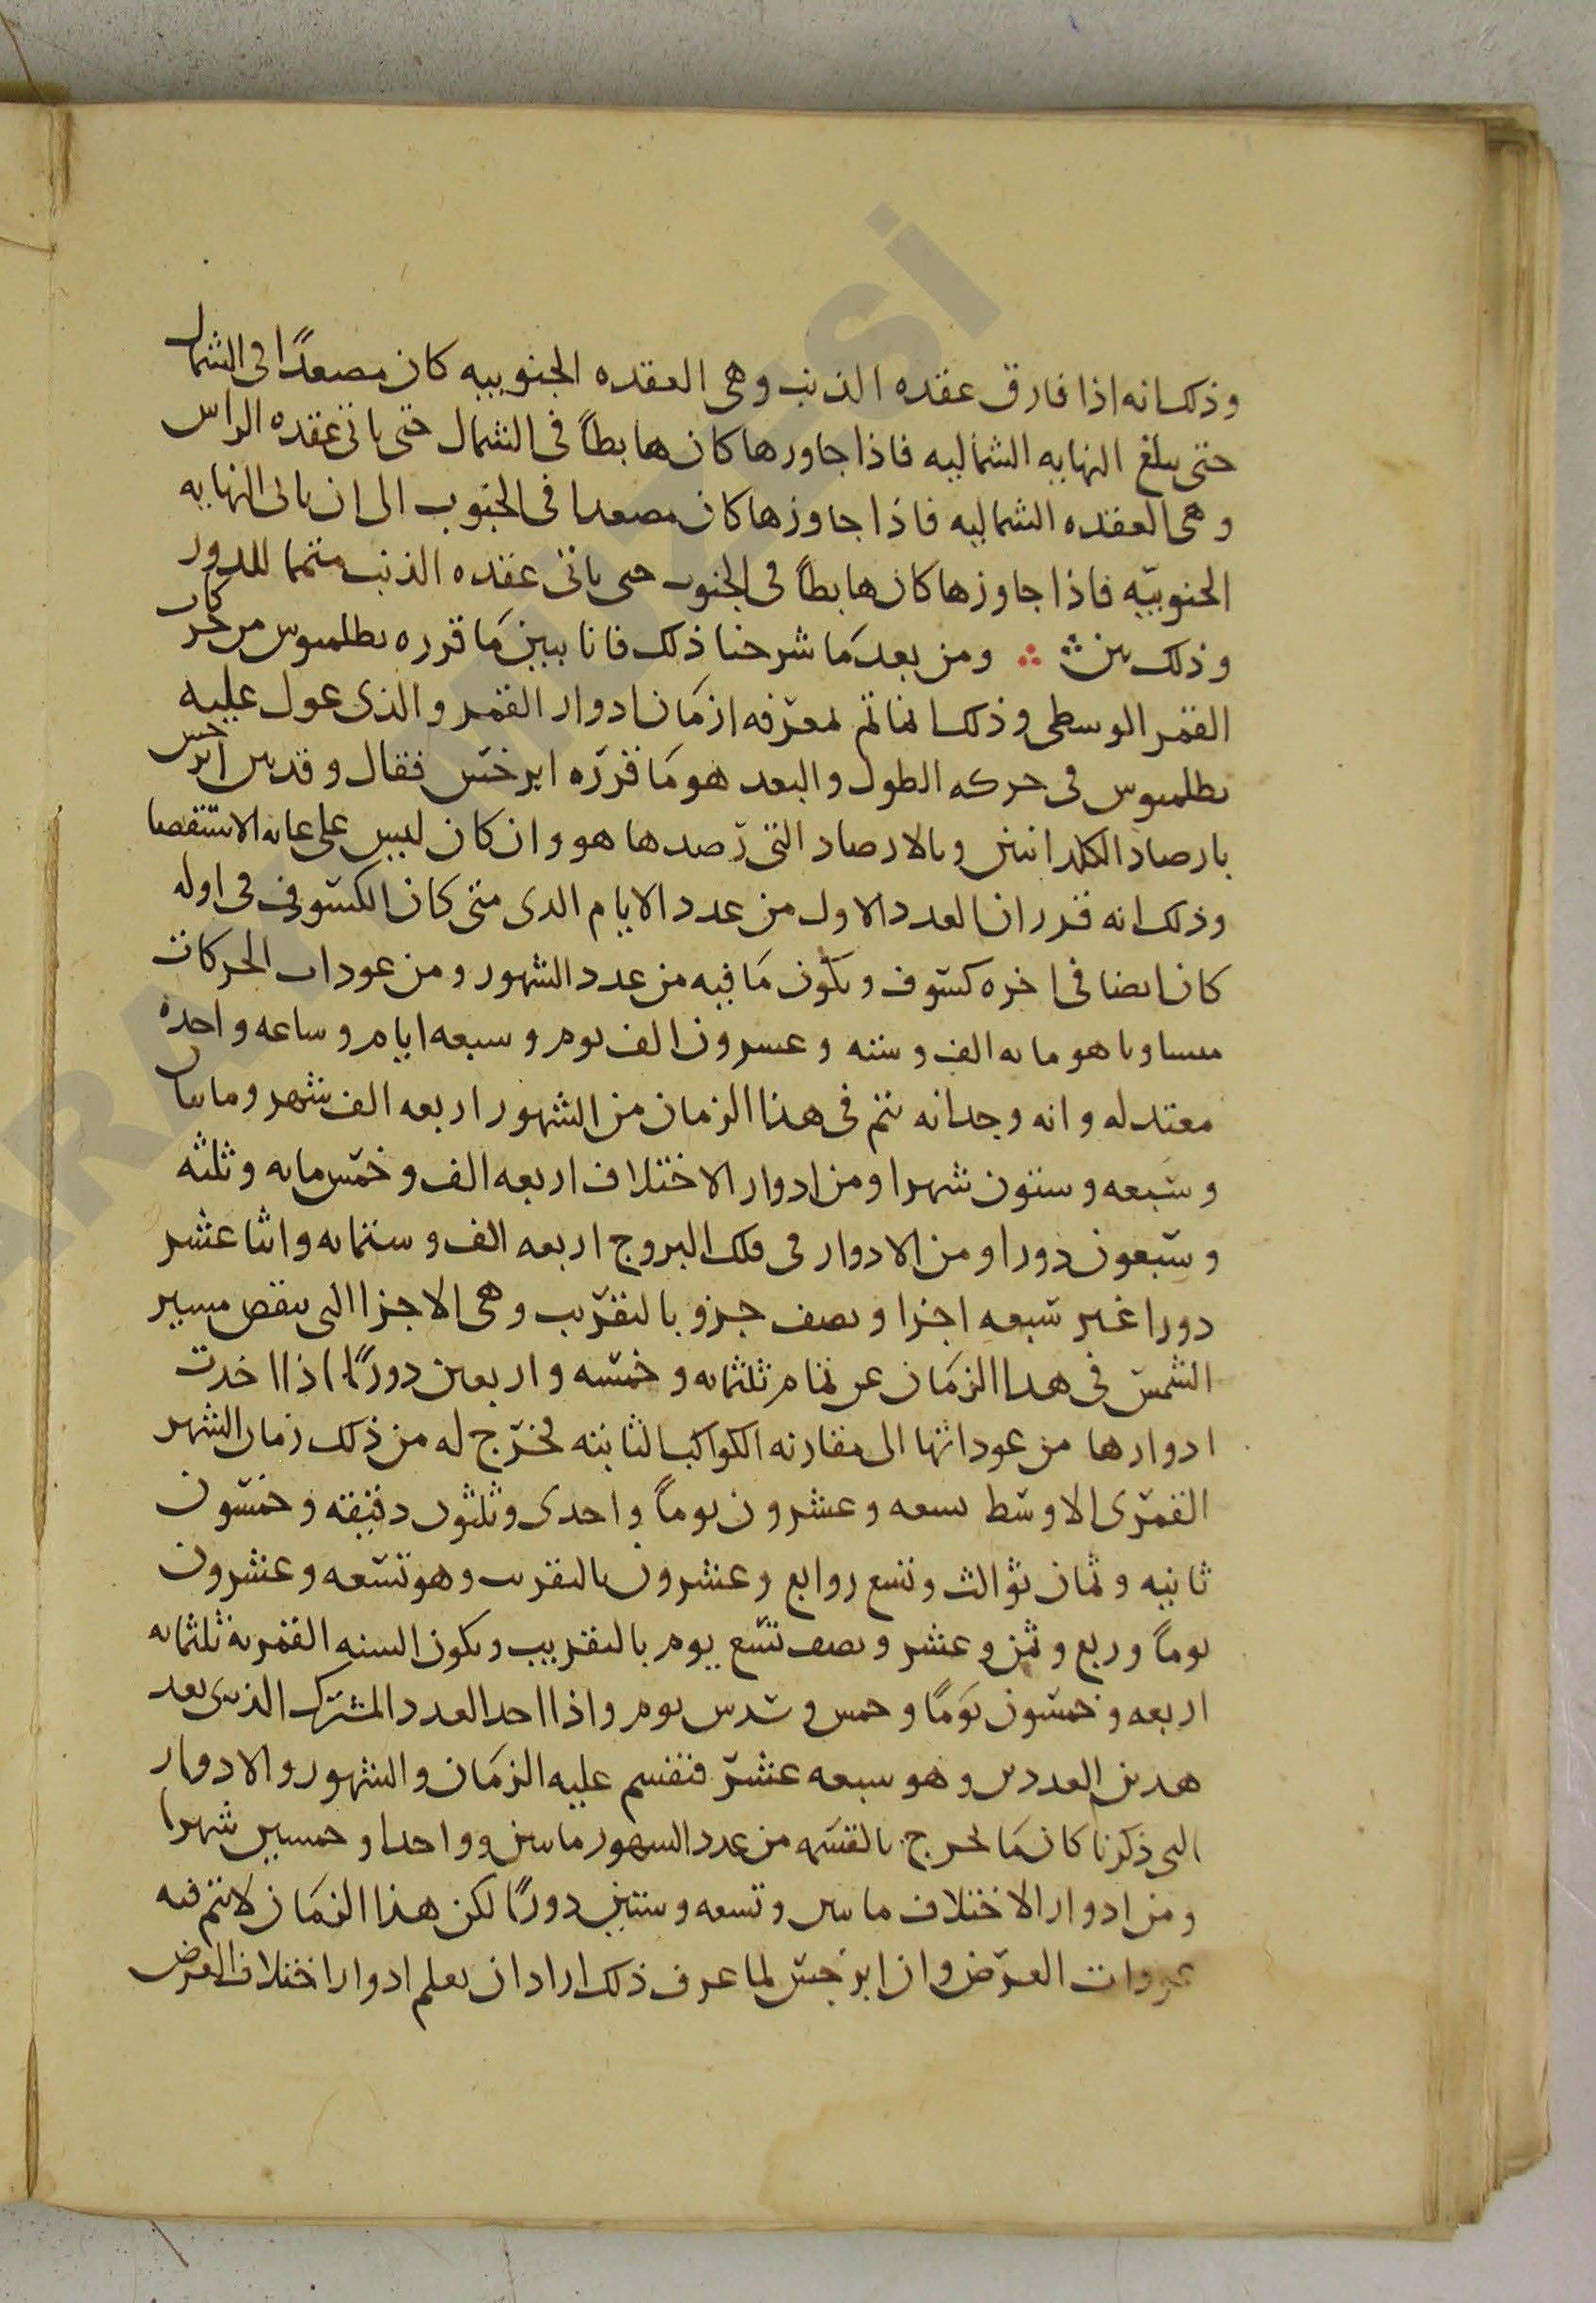 وذلك انه اذا فارق عقده الذنب وهى العقده الجنوبيه كان مصعدًا فى الشمال
حتى يبلغ النهايه الشماليه فاذا جاورها كان هابطاً فى الشمال حتى ياتى عقده الراس
وهى العقده الشماليه فاذا جاوزها كان مصعدا فى الجنوب الى ان ياتى النهايه
الجنوبيّه فاذا جاوزها كان هابطاً فى الجنوب حتى ياتى عقده الذنب متمما للدور
وذلك بين ومن بعد مَا شرحنا ذلك فانا نبين مَا قرره بطلميوس من حركات
القمر الوسطى وذلك انما تم لمعرّفه ازمَان ادوار القمر والذى عول عليه
بطلميوس فى حركه الطول والبعد هو مَا قرّره ابرخسّ فقال وقد بين ابرخس
بارصاد الكلدانيين وبالارصاد التى رَصدها هو وان كان ليس على غايه الاستقصا
وذلك انه قرر ان العدد الاول من عدد الايام الذى متى كان الكسّوف فى اوله
كان ايضا فى اخره كسّوف ويكون مَا فيه من عدد الشهور ومن عودات الحركات
متساويا هو مايه الف وسته وعشرون الف يوم وسبعه ايام وساعه واحده
معتدله وانه وجد انه تتم فى هذا الزمان من الشهور اربعه الف شهر ومايتان
وسَبعه وستون شهرا ومن ادوار الاختلاف اربعه الف وخمسّ مايه وثلثه
وسّبعون دورا ومن الادوار فى فلك البروج اربعه الف وستمايه واثنا عشر
دورا غير سّبعه اجزا ونصف جزو بالتقرّيب وهى الاجزا التى ينقص مسير
الشمسّ فى هذا الزمَان عن تمام ثلثمايه وخمسّه واربعين دورًا اذا اخذت
ادوارها من عوداتها الى مقارنه الكواكب الثابته فخرّج له من ذلك زمان الشهر
القمرّى الاوسّط تسعه وعشرون يوماً واحدى وثلثون دقيقه وخمسّون
ثانيه وثمان ثوالث وتسع روابع وعشرون بالتقريب وهو تسّعه وعشرون
يوماً وربع وثمن وعشر ونصف تسّع يوم بالتقريب ويكون السنه القمريه ثلثمايه
اربعه وخمسّون يَومًا وخمس وسّدس يوم واذا اخذ العدد المشترك الذى يعد
هذين العددين وهو سبعه عشرّ فنقسم عليه الزمَان والشهور والادوار
التى ذكرنا كان مَا يخرج بالقسَمه من عدد الشهور مايتين وواحدا وخمسين شهرا
ومن ادوار الاختلاف مايتين وتسعه وستين دورًا لكن هذا الزمَان لا تتم فيه
العرّض وان ابرخسّ لما عرف ذلك اراد ان يعلم ادوار اختلاف العرض